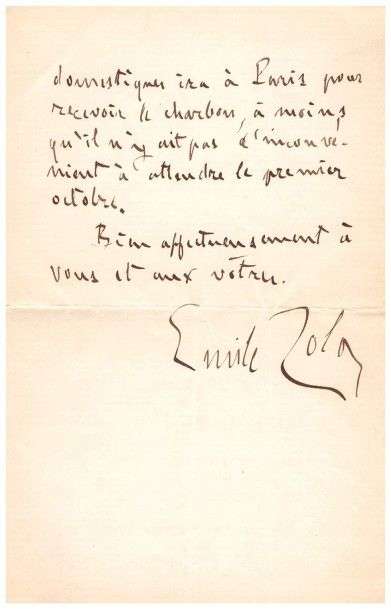 domestiques ira à Paris pour
recevoir le charbon, à moins
qu'il n'y ait pas d'inconvé-
nient à attendre le premier
octobre.
Bien affectueusement à
vous et aux vôtres.
Emile Zola